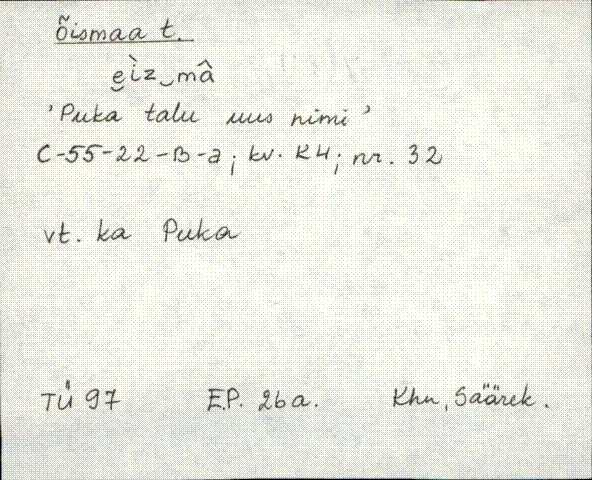 Õismaa t.
e̮ìz‿mâ
'Puka talu uus nimi'
C-55-22-B-a; kv. K4; nr. 32
vt. ka Puka
TÜ 97 E.P. 26a. Khn, Säärek.